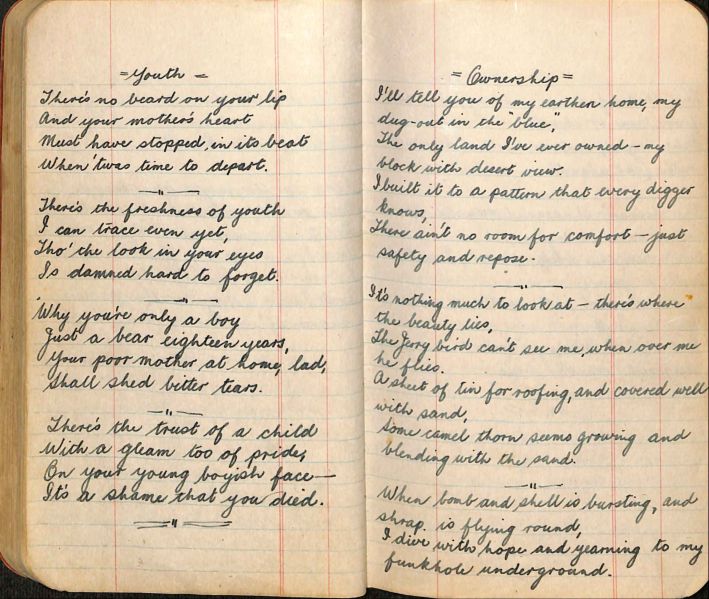 = Youth =
There's no beard on your lip
And your mother's heart
Must have stopped, in its beat
When 'twas time to depart.
There's the freshness of youth
I can trace even yet,
Tho' the look in your eyes
Is damned hard to forget.
Why you're only a boy
Just a bear eighteen years,
Your poor mother at home, lad,
Shall shed bitter tears.
There's the trust of a child
With a gleam too of pride,
On your young boyish face—
It's a shame that you died.
= Ownership =
I'll tell you of my earthen home, my
dug-out in the "blue",
The only land I've ever owned – my
block with desert view.
I built it to a pattern that every digger
knows,
There ain't no room for comfort – just
safety and repose.
It's nothing much to look at – there's where
the beauty lies,
The Jerry bird can't see me, when over me
he flies.
A sheet of tin for roofing, and covered well
with sand,
Some camel thorn seems growing and
blending with the sand.
When bomb and shell is bursting, and
shrap. is flying round,
I dive with hope and yearning to my
funkhole underground.